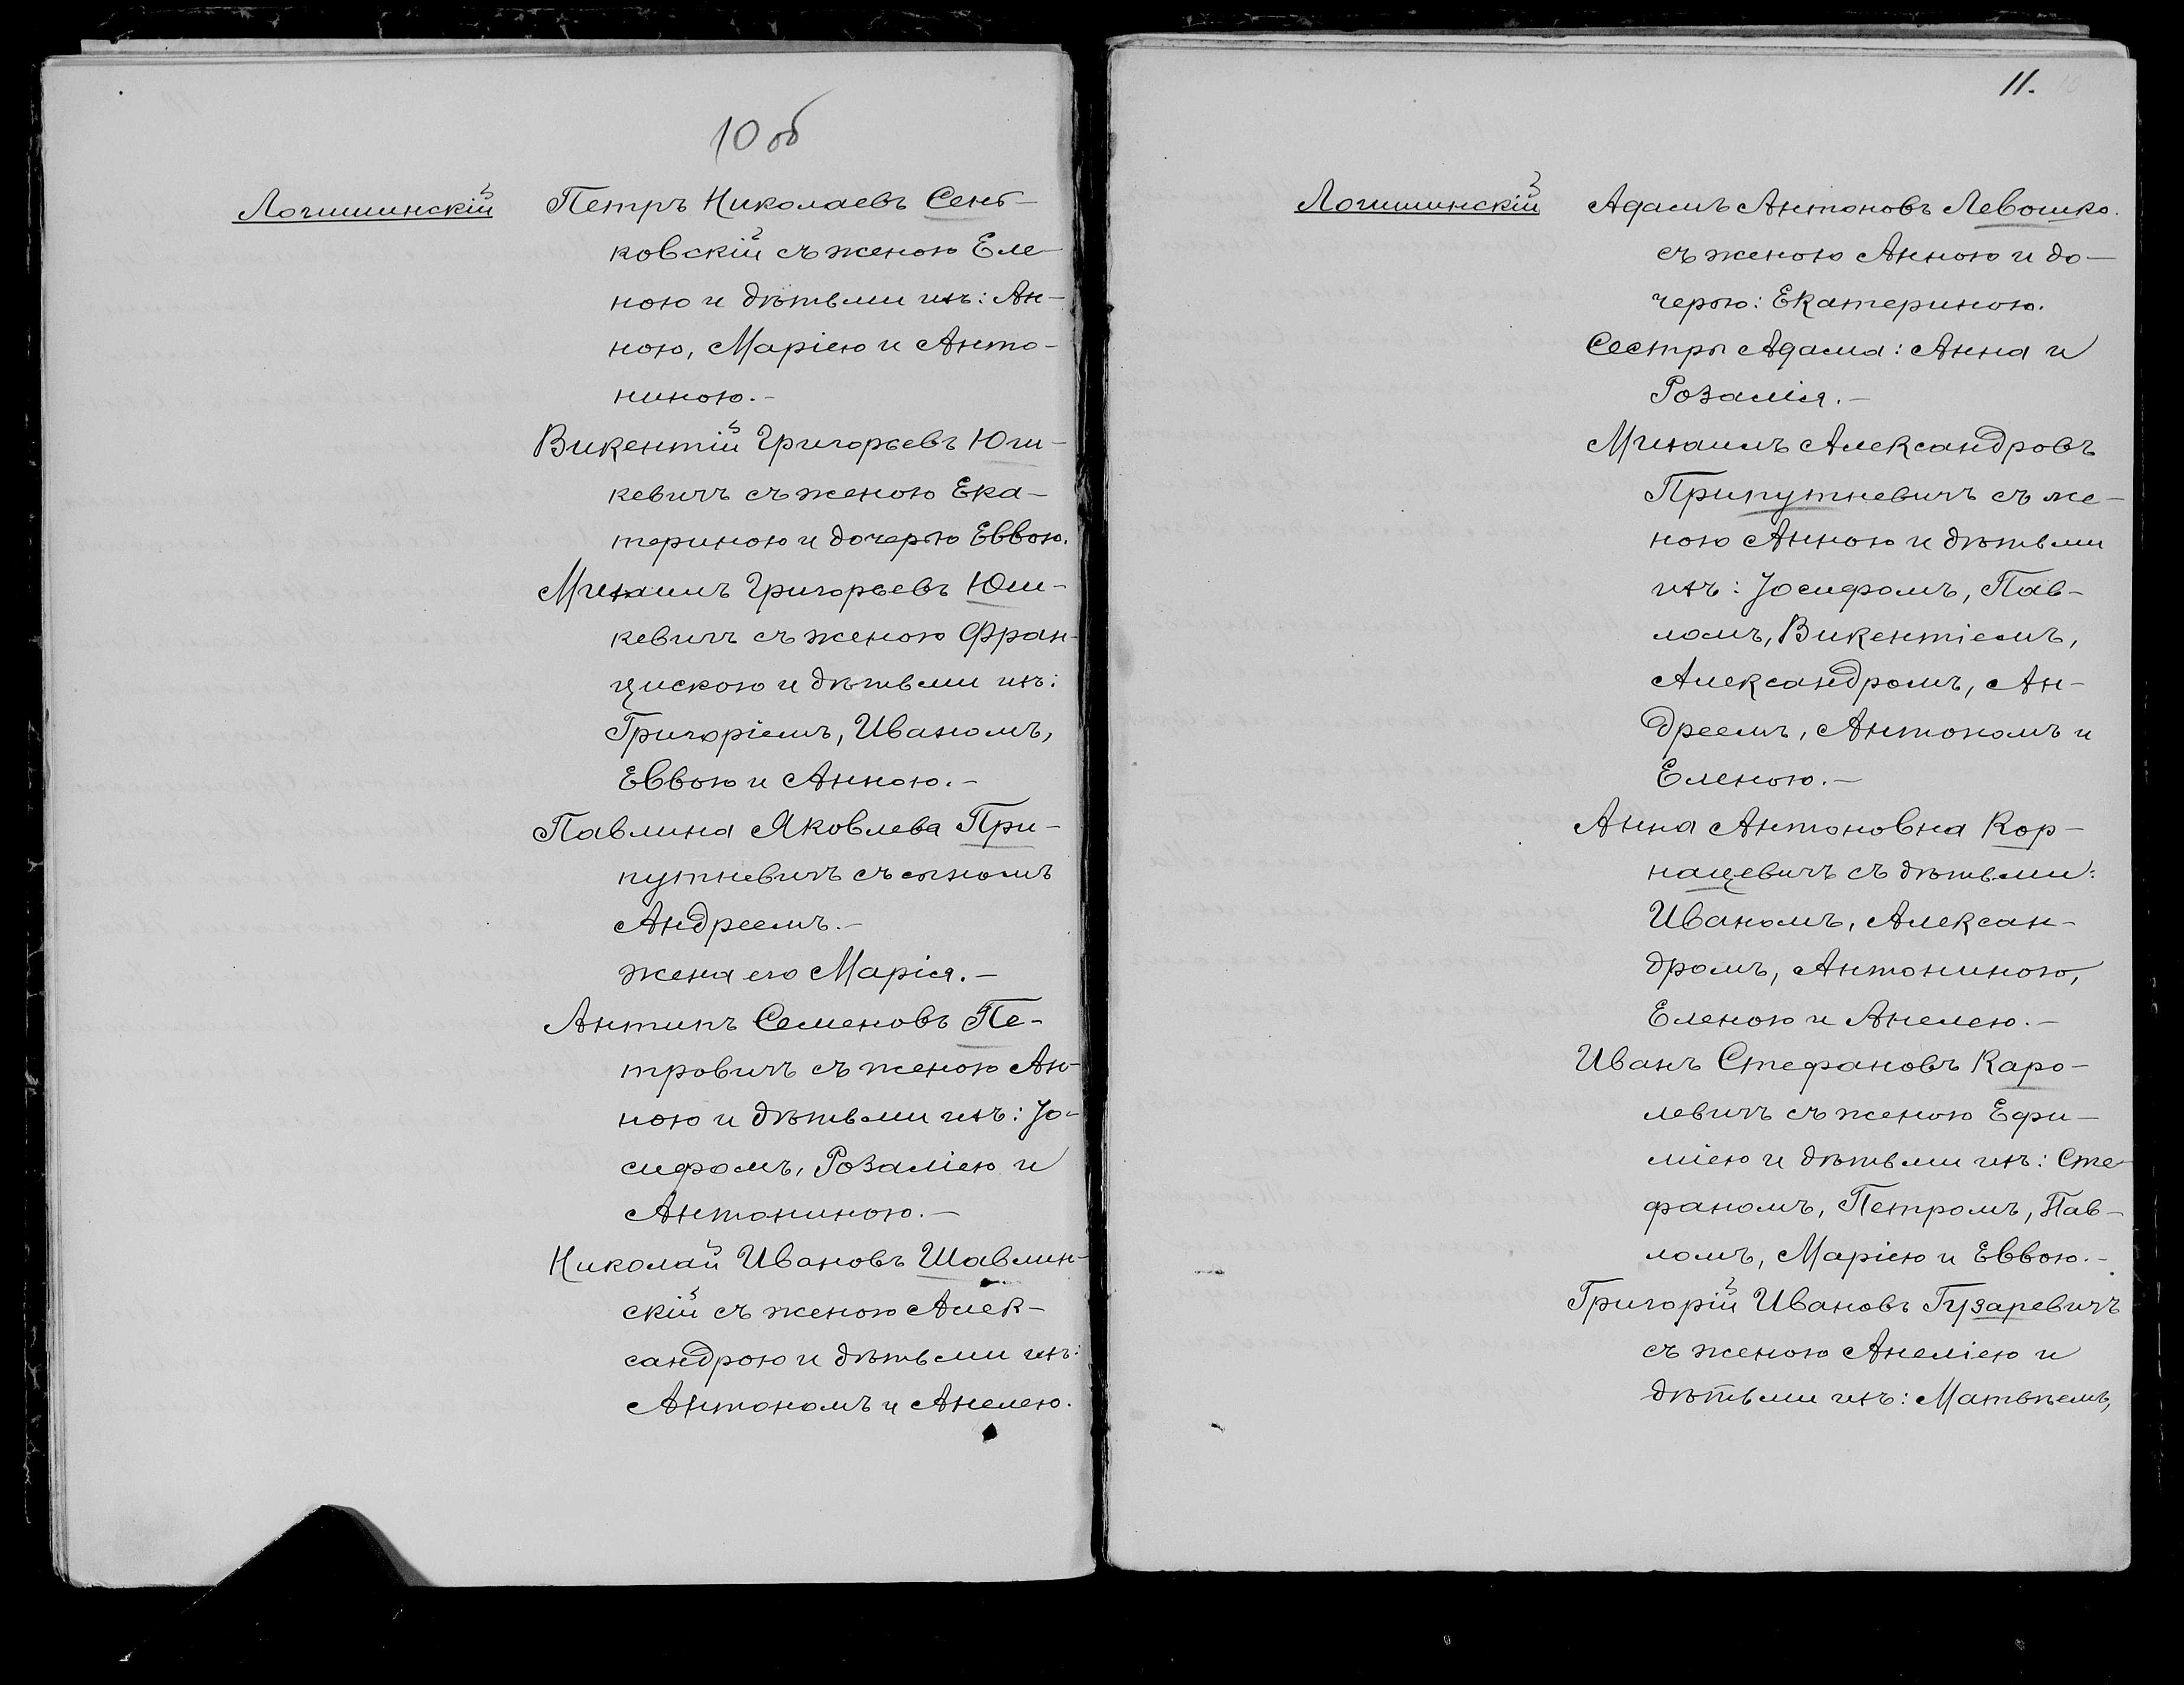 10 об
Логишинскій
Петръ Николаевъ Сенб-
ковскій съ женою Еле-
ною и дѣтьми ихъ: Ан-
ною, Маріею и Анто-
ниною.-
Викентій Григорьевъ Юш-
кевичъ съ женою Ека-
териною и дочерью Еввою.
Михаилъ Григорьевъ Юш-
кевичъ съ женою Фран-
цискою и дѣтьми ихъ:
Григоріемъ, Иваномъ,
Еввою и Анною.-
Павлина Яковлева При-
путневичъ съ сыномъ
Андреемъ.-
жена его Марія.-
Антипъ Семеновъ Пе-
тровичъ съ женою Ан-
ною и дѣтьми ихъ: Іо-
сифомъ, Розаліею и
Антониною.-
Николай Ивановъ Шавлин-
скій съ женою Алек-
сандрою и дѣтьми ихъ:
Антономъ и Анелею.
11.
Логишинскій
Адамъ Антоновъ Левошко.
съ женою Анною и до-
черью: Екатериною.
Сестры Адама: Анна и
Розалія.-
Михаилъ Александровъ
Припутневичъ съ же-
ною Анною и дѣтьми
ихъ: Іосифомъ, Пав-
ломъ, Викентіемъ,
Александромъ, Ан-
дреемъ, Антономъ и
Еленою.-
Анна Антоновна Кор-
нацевичъ съ дѣтьми:
Иваномъ, Алексан-
дромъ, Антониною,
Еленою и Анелею.-
Иванъ Стефановъ Каро-
левичъ съ женою Ефи-
міею и дѣтьми ихъ: Сте-
фаномъ, Петромъ, Пав-
ломъ, Маріею и Еввою.-
Григорій Ивановъ Гузаревичъ
съ женою Анеліею и
дѣтьми ихъ: Матвѣемъ,